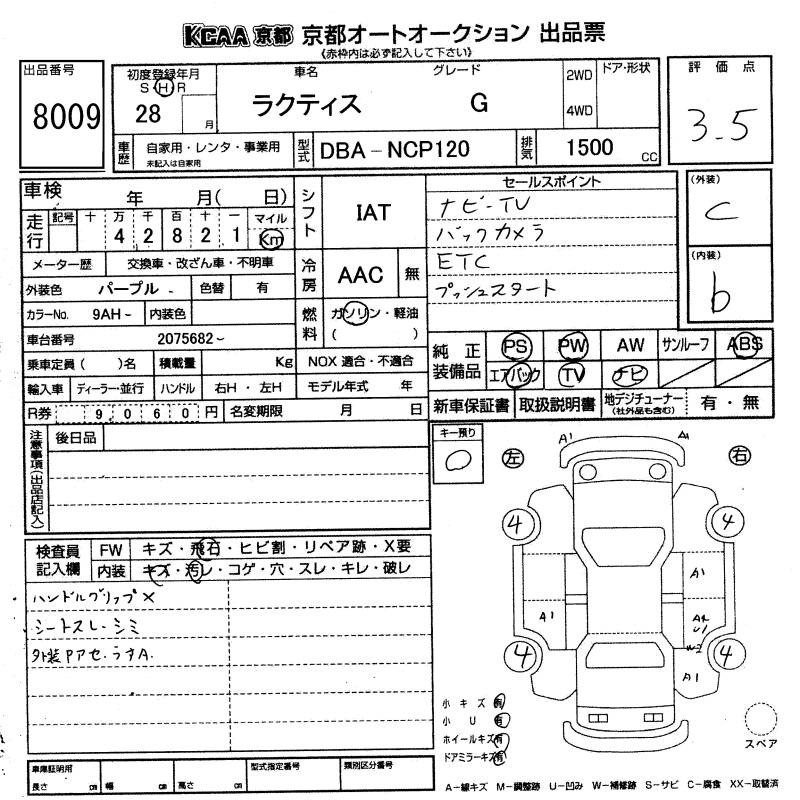 KCAA 京都 京都オートオークション 出品票
《赤枠内は必ず記入して下さい》
出品番号
8009
初度登録年月
S H R
28 月
車名
ラクティス
グレード
G
2WD
4WD
ドア・形状
評価点
3.5
車歴
自家用・レンタ・事業用
未記入は自家用
型式
DBA-NCP120
排気
1500 CC
車検 年 月( 日)
走行
記号 十 万 千 百 十 一 マイル
4 2 8 2 1 Km
メーター歴 交換車・改ざん車・不明車
外装色 パープル - 色替 有
カラーNo. 9AH- 内装色
車台番号 2075682~
乗車定員( )名 積載量 Kg
NOX 適合・不適合
輸入車 ディーラー・並行 ハンドル 右H・左H モデル年式 年
R券 9,060円 名変期限 月 日
シフト IAT
冷房 AAC 無
燃料 ガソリン・軽油
( )
セールスポイント
ナビ-TV
バックカメラ
ETC
プッシュスタート
(外装)
C
(内装)
b
純正装備品
PS PW AW サンルーフ ABS
エアバック TV ナビ
新車保証書 取扱説明書 地デジチューナー
(社外品も含む)
有・無
注意事項(出品店記入)
後日品
キー預り
0
検査員記入欄
FW キズ・飛石・ヒビ割・リペア跡・X要
内装 キズ・汚レ・コゲ・穴・スレ・キレ・破レ
ハンドルグリップ×
シートスレ・シミ
外装Pアセ.うすA.
左 右
A1 A1
4 4
A1
A1
U1
W2
4 4
A1
小キズ 有
小U 有
ホイールキズ 有
ドアミラーキズ 有
スペア
A-線キズ M-調整跡 U-凹み W-補修跡 S-サビ C-腐食 XX-取替済
車庫証明用
長さ cm 幅 cm 高さ cm
型式指定番号
類別区分番号